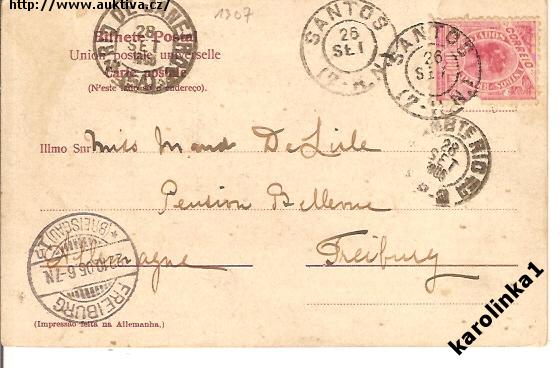 http://www.auktiva.cz/
1307
Bilhete Postal
Union postale universelle
Carte postale
(N'este lado só o endereço.)
SANTOS
26
SET
SANTOS
26
SET
CORREIO
28
SET
28
SET
Illmo Snr Miss Maud De Lisle
Pension Bellevue
Allemagne Freiburg
FREIBURG
* (BREISGAU) *
22.10.05.6-7N.
(Impressão feita na Allemanha.)
karolinka1